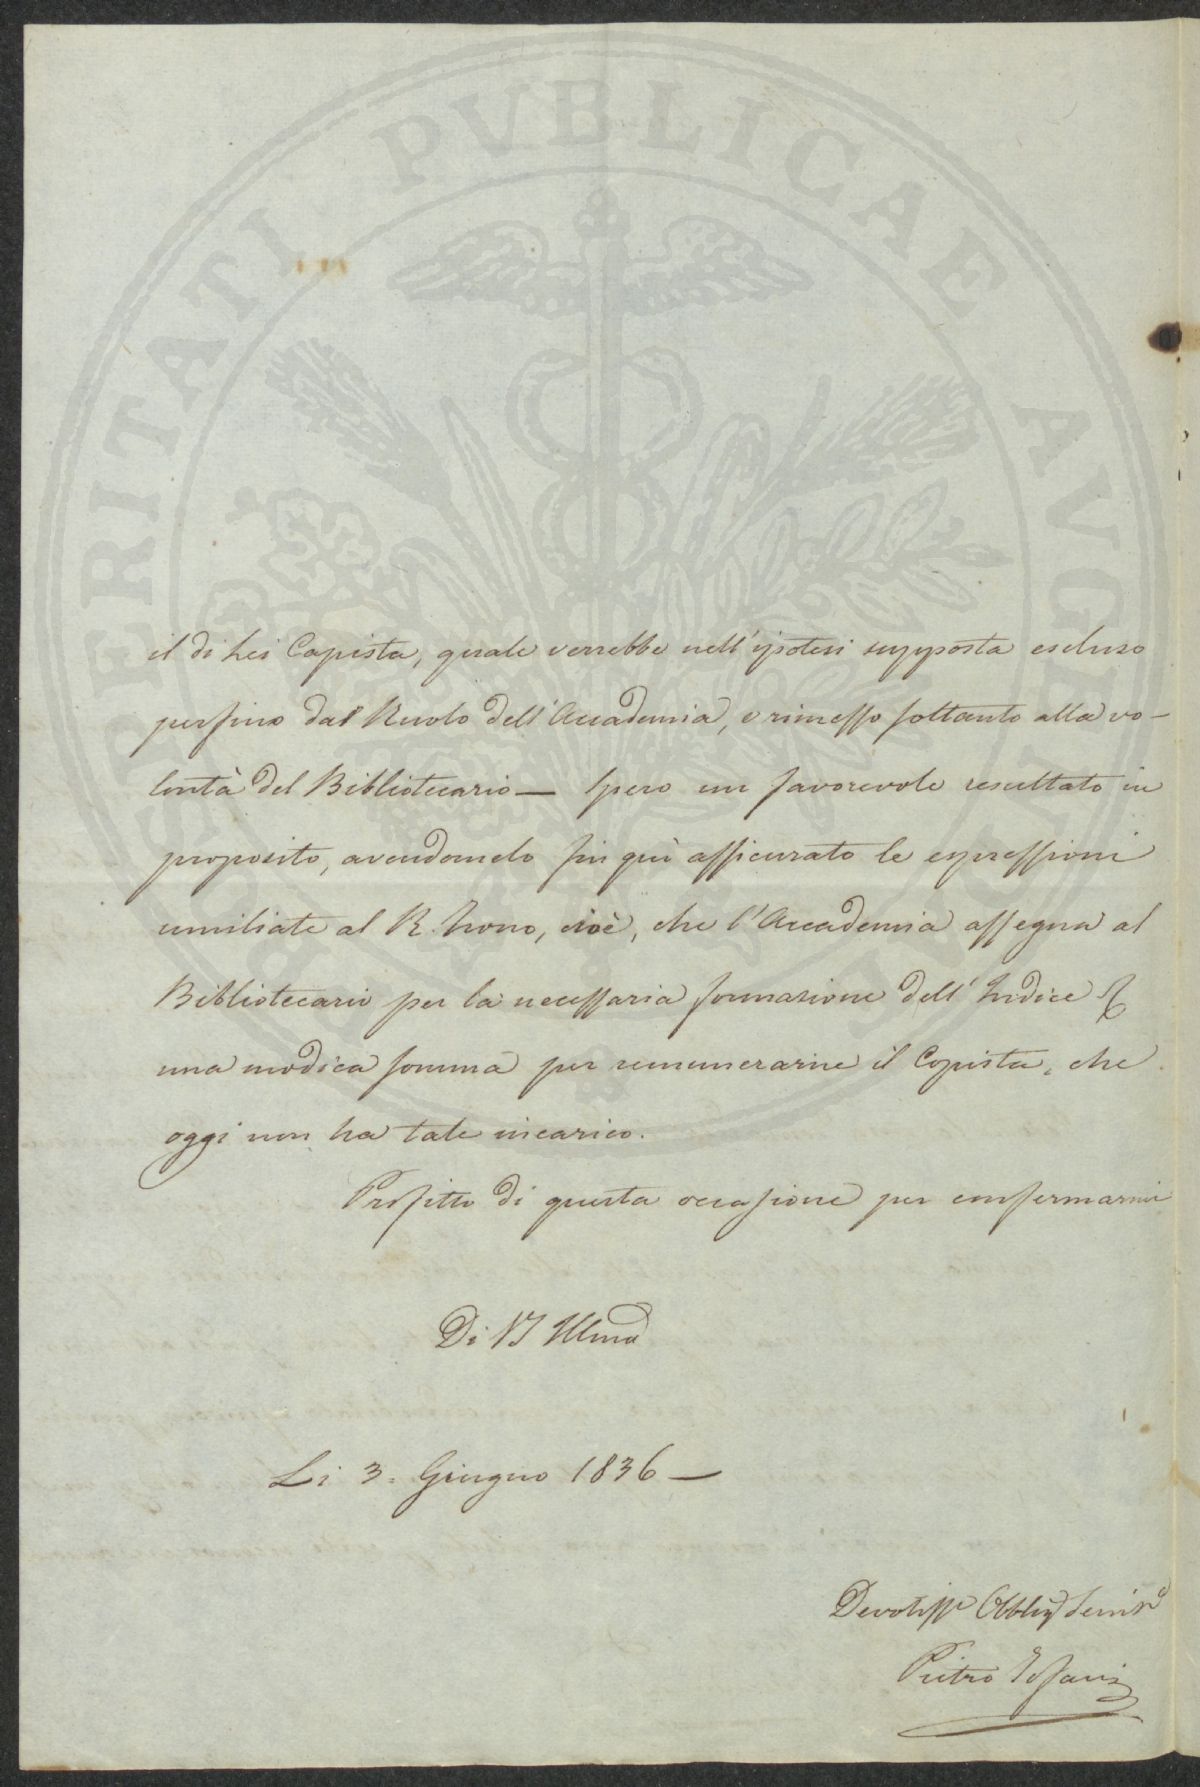 PROSPERITATI PVBLICAE AVGENDAE
il di Lei Copista, quale verrebbe nell'ipotesi supposta escluso
perfino dal Ruolo dell'Accademia, e rimesso soltanto alla vo-
lontà del Bibliotecario — Spero un favorevole resultato in
proposito, avendomelo fin quì assicurato le espressioni
umiliate al R. Trono, cioè, che l'Accademia assegna al
Bibliotecario per la necessaria formazione dell'Indice &
una modica somma per remunerarne il Copista, che
oggi non ha tale incarico.
Profitto di questa occasione per confermarmi
Di VS Illma
Li 3. Giugno 1836 —
Devotiss. Obblig Servitre
Pietro